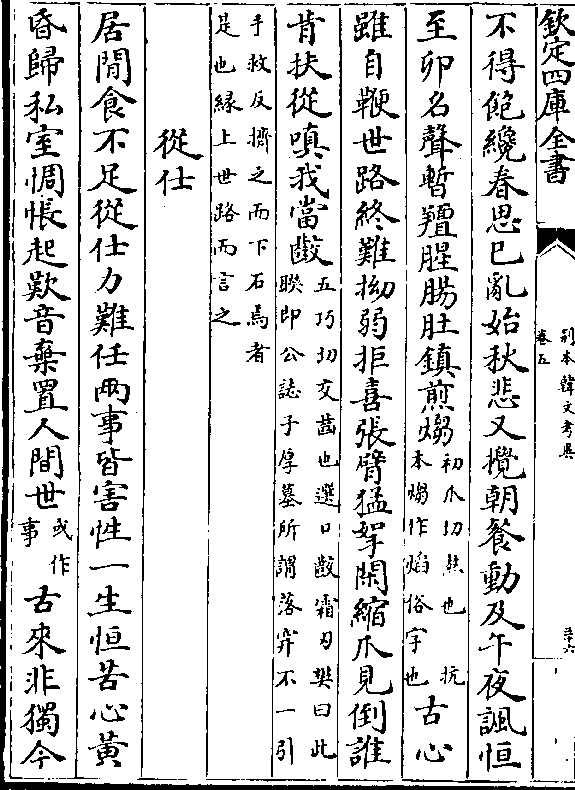 欽定四庫全書
別本韓文考異
卷五
三十六
不得飽纔春思已亂始秋悲又攪朝餐動及午夜諷恒
至卯名聲暫羶腥腸肚鎮煎煼初爪切熬也 抗本煼作熖俗字也古心
雖自鞭世路終難拗弱拒喜張臂猛拏閑縮爪見倒誰
肯扶從嗔我當齩五巧切交齧也選曰齩霜刃樊曰此聯即公誌子厚墓所謂落穽不一引
手救反擠之而下石焉者是也縁上世路而言之
從仕
居閒食不足從仕力難任兩事皆害性一生恒苦心黃
昏歸私室惆悵起歎音棄置人間世或作事古來非獨今